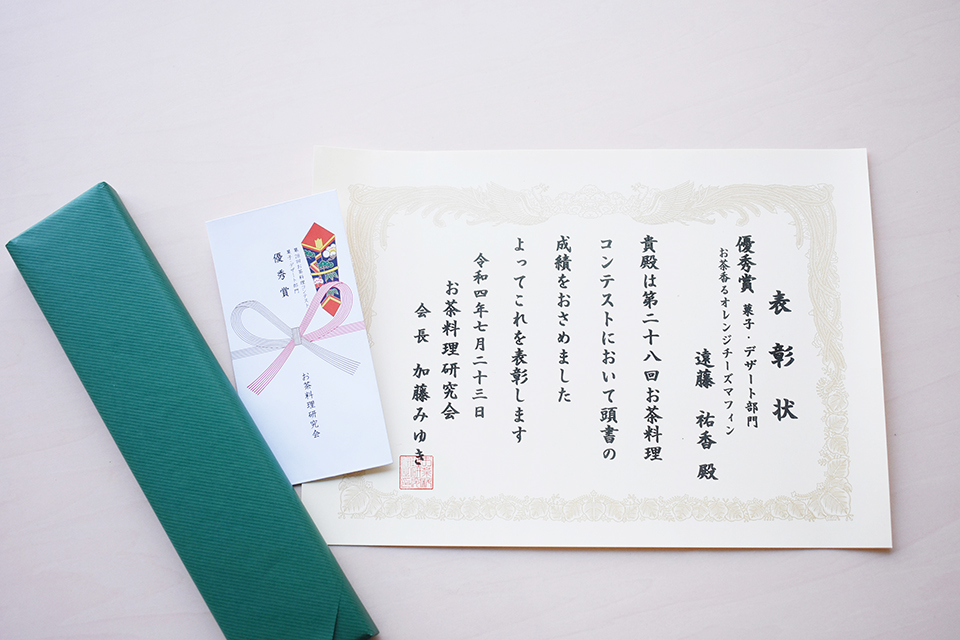 表彰状
優秀賞 菓子・デザート部門
お茶香るオレンジチーズマフィン
遠藤 祐香 殿
貴殿は第二十八回お茶料理
コンテストにおいて頭書の
成績をおさめました
よってこれを表彰します
令和四年七月二十三日
お茶料理研究会
会長 加藤みゆき
第28回お茶料理コンテスト
菓子・デザート部門
優秀賞
お茶料理研究会